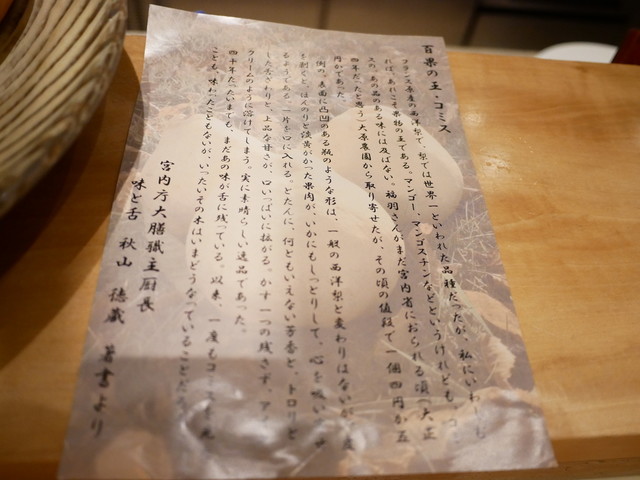 百果の王・コミス
フランス原産の西洋梨で、梨では世界一といわれた品種だったが、私にいわし
れば、あれこそ果物の王である。マンゴー、マンゴスチンなどというけれども、コ
スの、あの品のある味には及ばない。福羽さんがまだ宮内省におられる頃(大正
四年だったと思う)大原農園から取り寄せたが、その頃の値段で一個四円か五
円かであった。
例の、表面に凸凹のある瓶のような形は、一般の西洋梨と変わりはないが、皮
を剥くと、ほんのりと淡黄がかった果肉が、いかにもしっとりして、心を吸い
るようである。一片を口に入れる。とたんに、何ともいえない芳香と、トロリと
した舌ざわりと、上品な甘さが、口いっぱいに拡がる。かす一つの残さず、ア
クリームのように溶けてしまう。実に素晴らしい逸品であった。
四十年たったいまでも、まだあの味が舌に残っている。以来、一度もコミスを見
ことも、味わったこともないが、いったいその木はいまどうなっていることだろ
宮内庁大膳職主厨長
味と舌 秋山 徳蔵 著書より